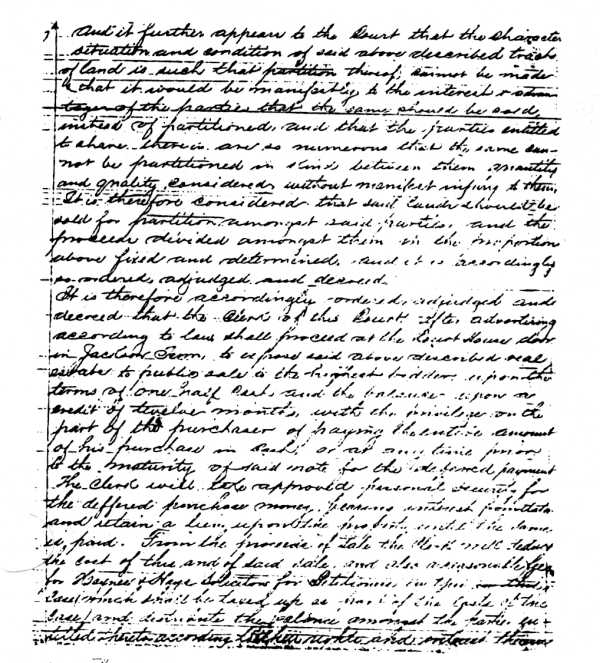 And it further appears to the Court that the character
situation and condition of said above described tracts
of land is such that partition thereof cannot be made
that it would be manifestly to the interest &
of the parties that the same should be sold,
instead of partitioned, and that the parties entitled
to share therein are so numerous that the same can-
not be partitioned in kind between them, quantity
and quality considered, without manifest injury to them,
It is therefore considered that said lands should be
sold for partition amongst said parties and the
proceeds divided amongst them in the proportion
above fixed and determined, and it is accordingly
so ordered, adjudged and decreed.
It is therefore accordingly ordered, adjudged and
decreed that the Clerk of this Court after advertising
according to law shall proceed at the Court House door
in Jackson Tenn, to expose said above described real
estate to public sale to the highest bidder, upon the
terms of one half Cash, and the balance upon a
credit of twelve months, with the privilege on the
part of the purchaser of paying the entire amount
of his purchase in Cash, or at any time prior
to the maturity of said note for the deferred payment
The Clerk will take approved personal security for
the deffered purchase money, bearing interest from date
and retain a lien upon the property until the same
is paid. From the proceeds of Sale the Clerk will deduct
the cost of this and of said sale, and also a reasonable fee
for Haynes & Hays Solicitors for Petitioners in this
case which shall be taxed up as part of the Costs of the
case and distribute the balance amongst the parties en-
titled hereto according to their rights and interest